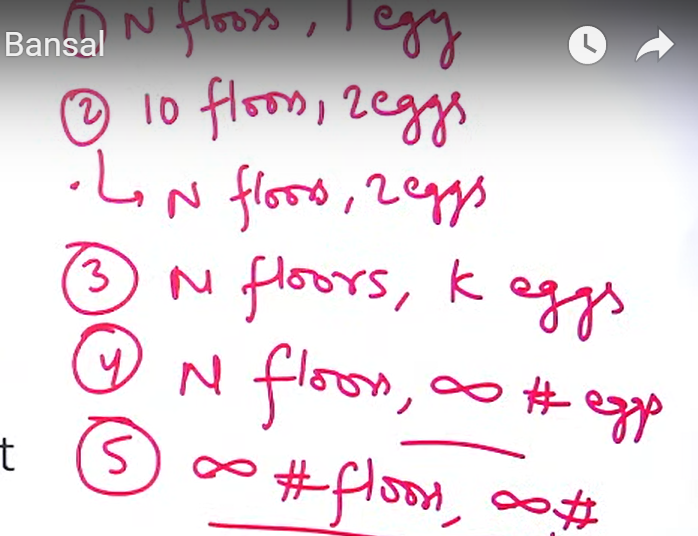 Bansal
① N floors, 1 egg
② 10 floors, 2 eggs
↳ N floors, 2 eggs
③ N floors, k eggs
④ N floors, ∞ # eggs
t
⑤ ∞ # floors, ∞ #